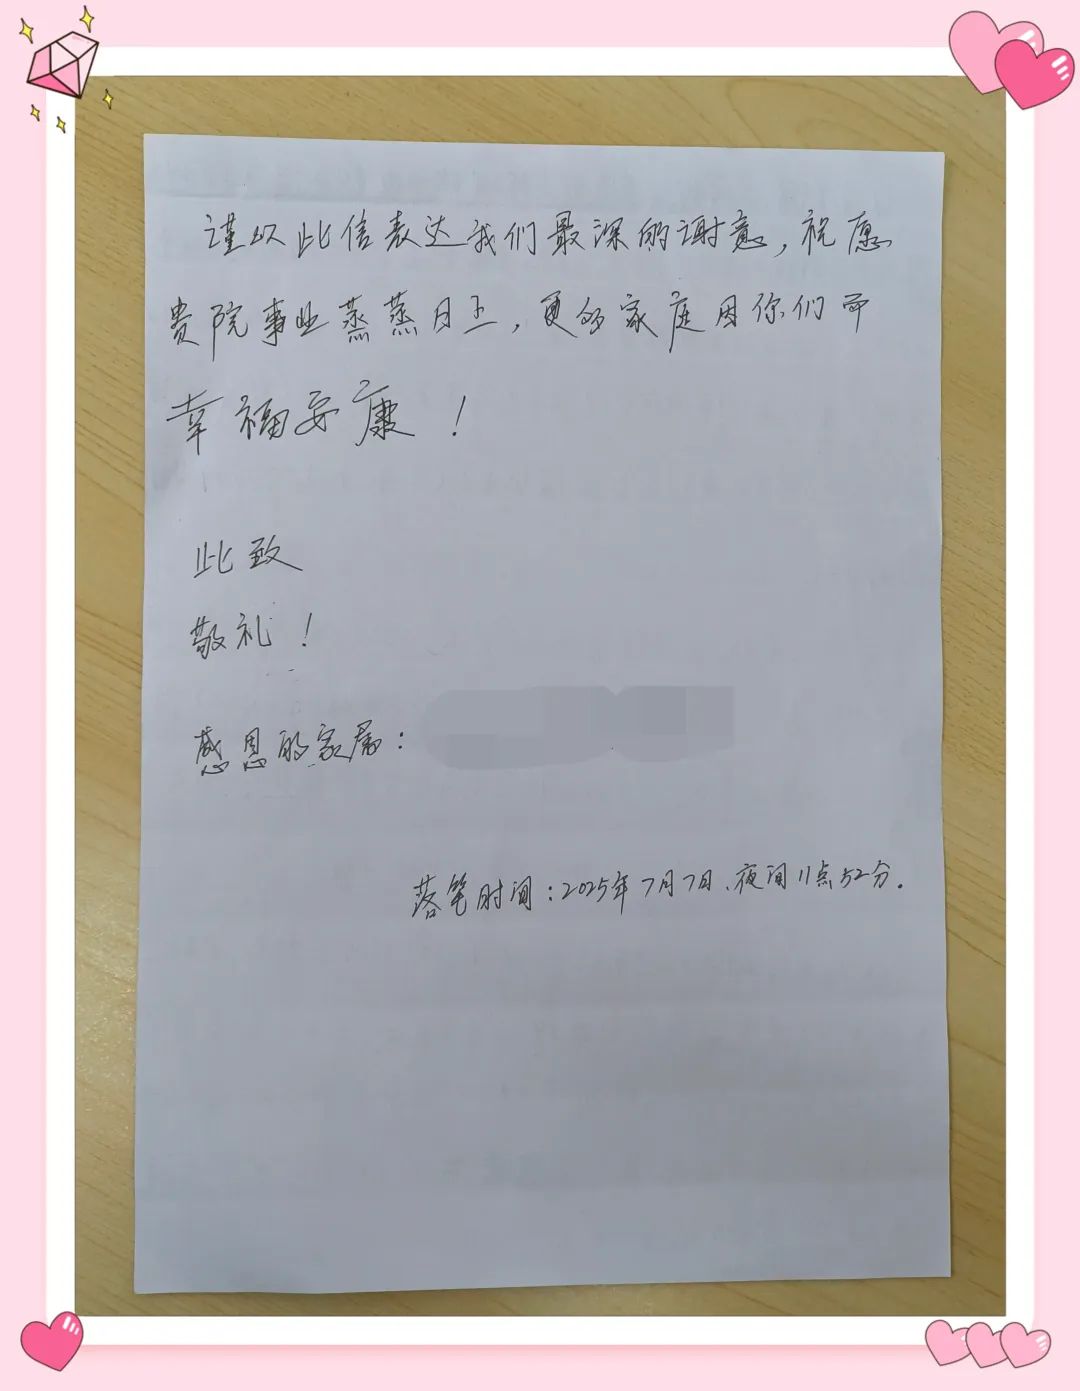 谨以此信表达我们最深的谢意，祝愿
贵院事业蒸蒸日上，更多家庭因你们而
幸福安康！
此致
敬礼！
感恩的家属：
落笔时间：2025年7月7日、夜间11点52分.